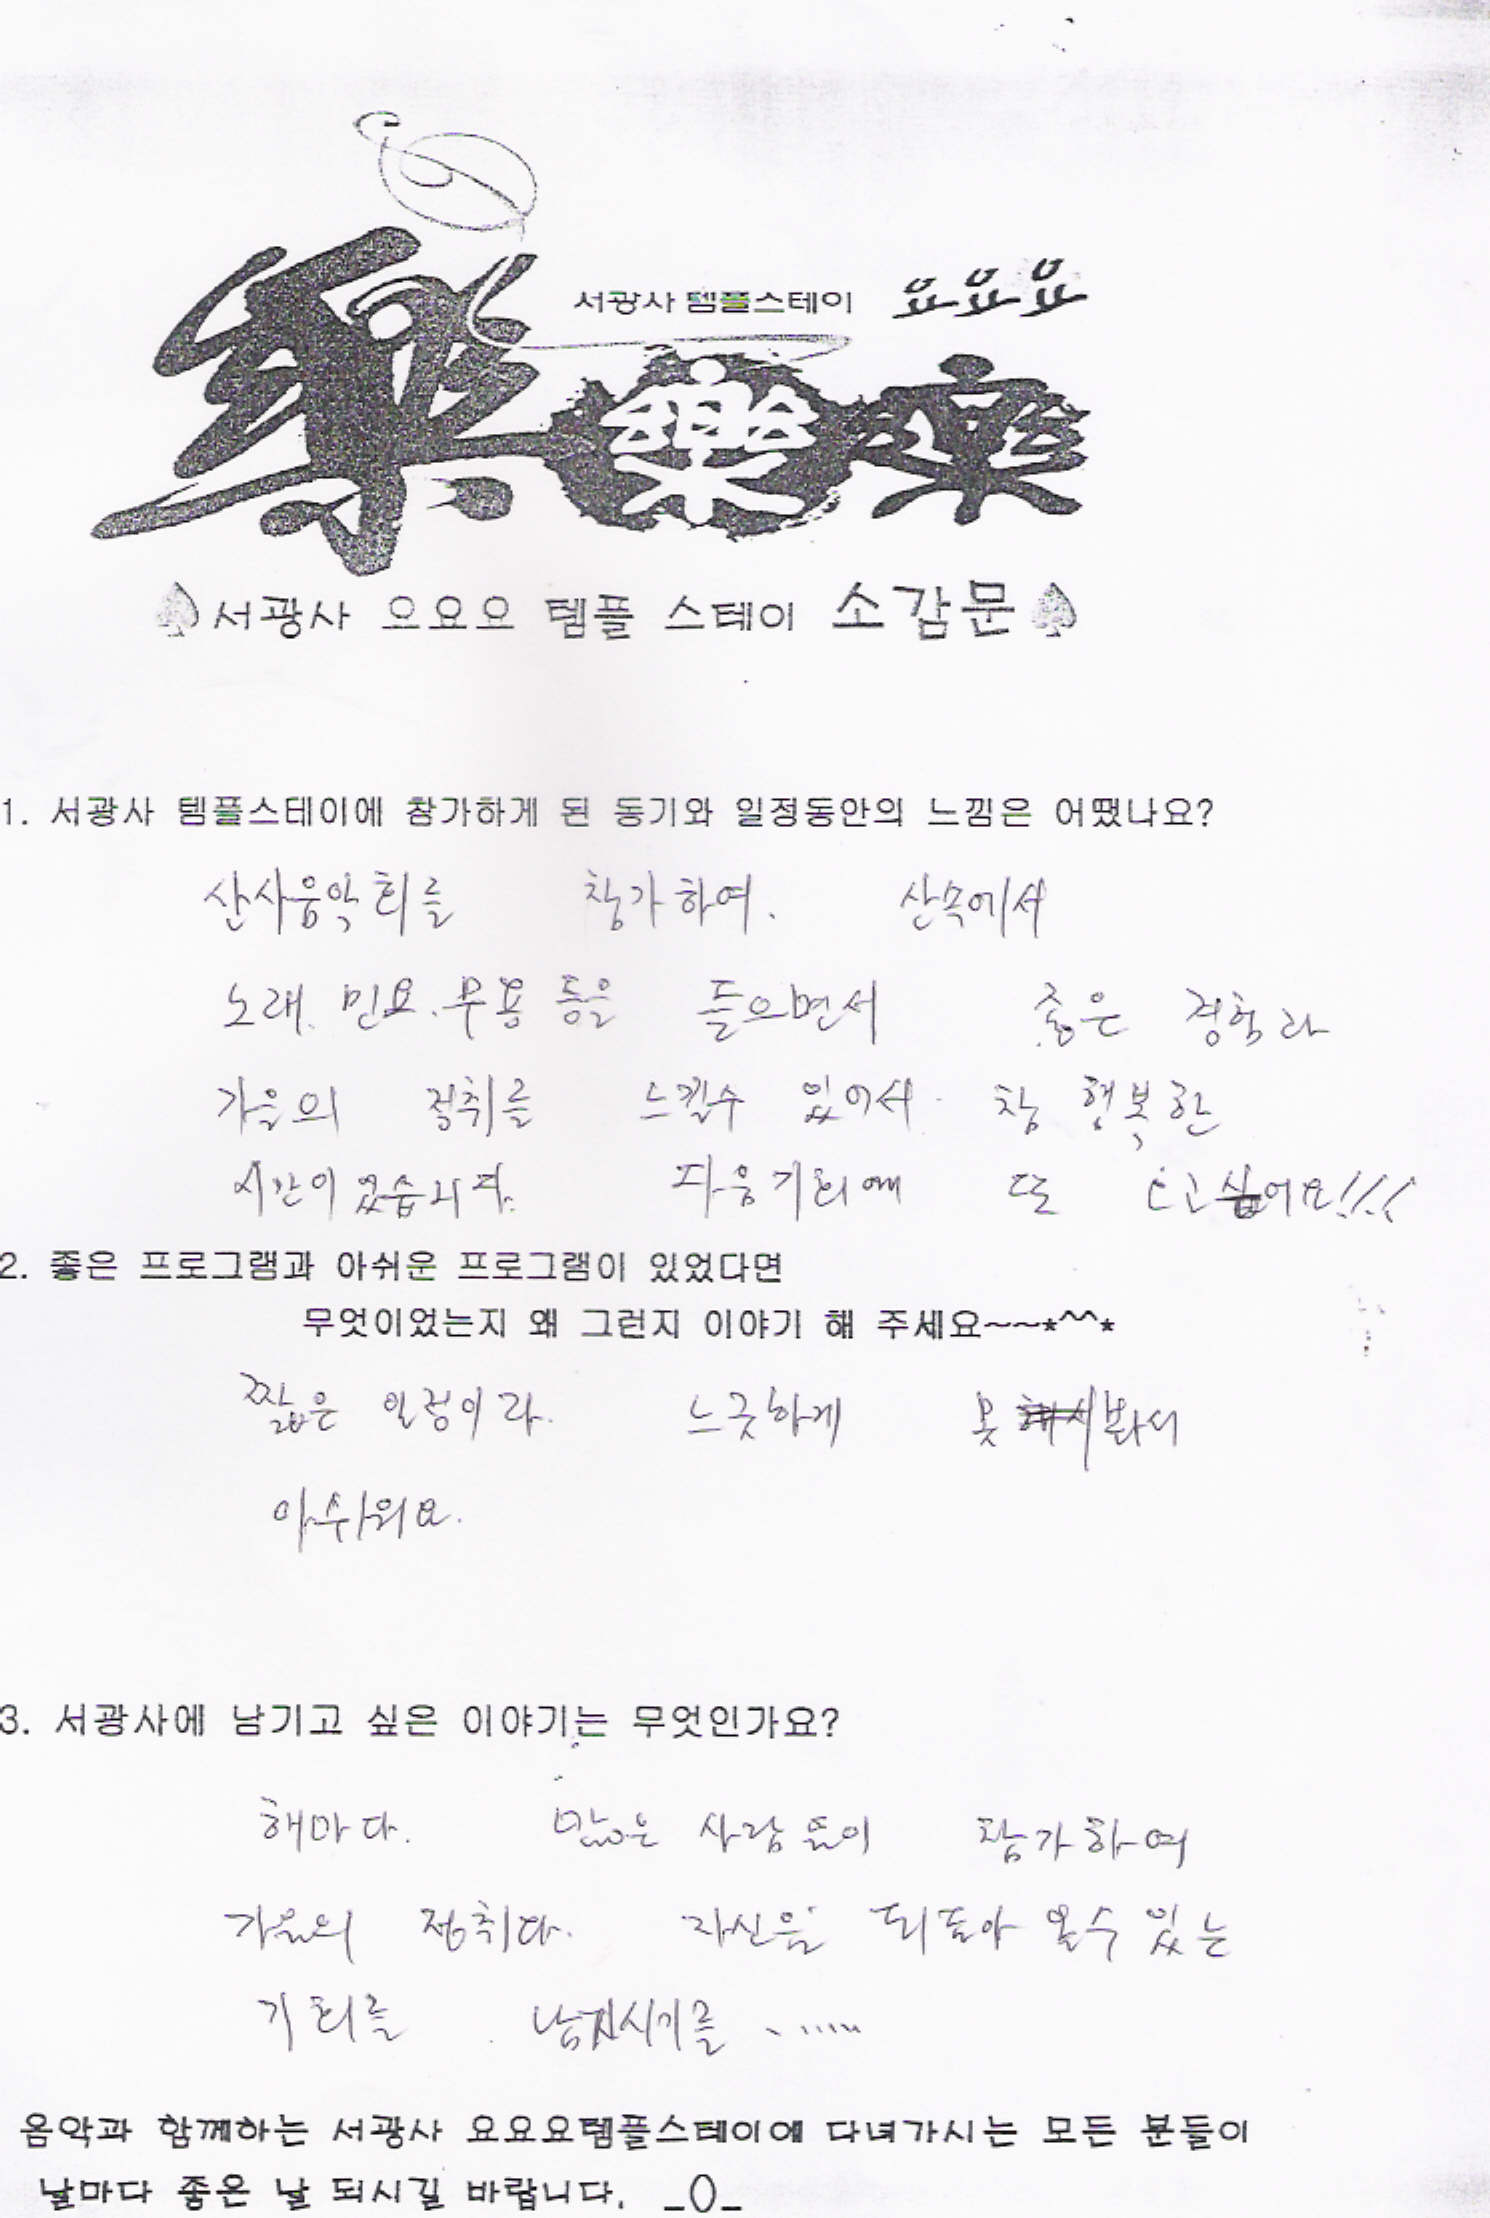 서광사 템플스테이 요요요
樂樂樂
서광사 요요요 템플 스테이 소감문
1. 서광사 템플스테이에 참가하게 된 동기와 일정동안의 느낌은 어땠나요?
산사음악회를 참가하여. 산속에서
노래. 민요. 무용 등을 들으면서 좋은 경험과
가을의 정취를 느낄수 있어서 참 행복한
시간이었습니다. 다음기회에 또 오고싶어요!!!
2. 좋은 프로그램과 아쉬운 프로그램이 있었다면
무엇이었는지 왜 그런지 이야기 해 주세요~~*^^*
짧은 일정이라. 느긋하게 못 봐서
아쉬워요.
3. 서광사에 남기고 싶은 이야기는 무엇인가요?
해마다. 많은 사람들이 참가하여
가을의 정취다. 자신을 되돌아 올수 있는
기회를 시기를 ......
음악과 함께하는 서광사 요요요템플스테이에 다녀가시는 모든 분들이
날마다 좋은 날 되시길 바랍니다. _()_